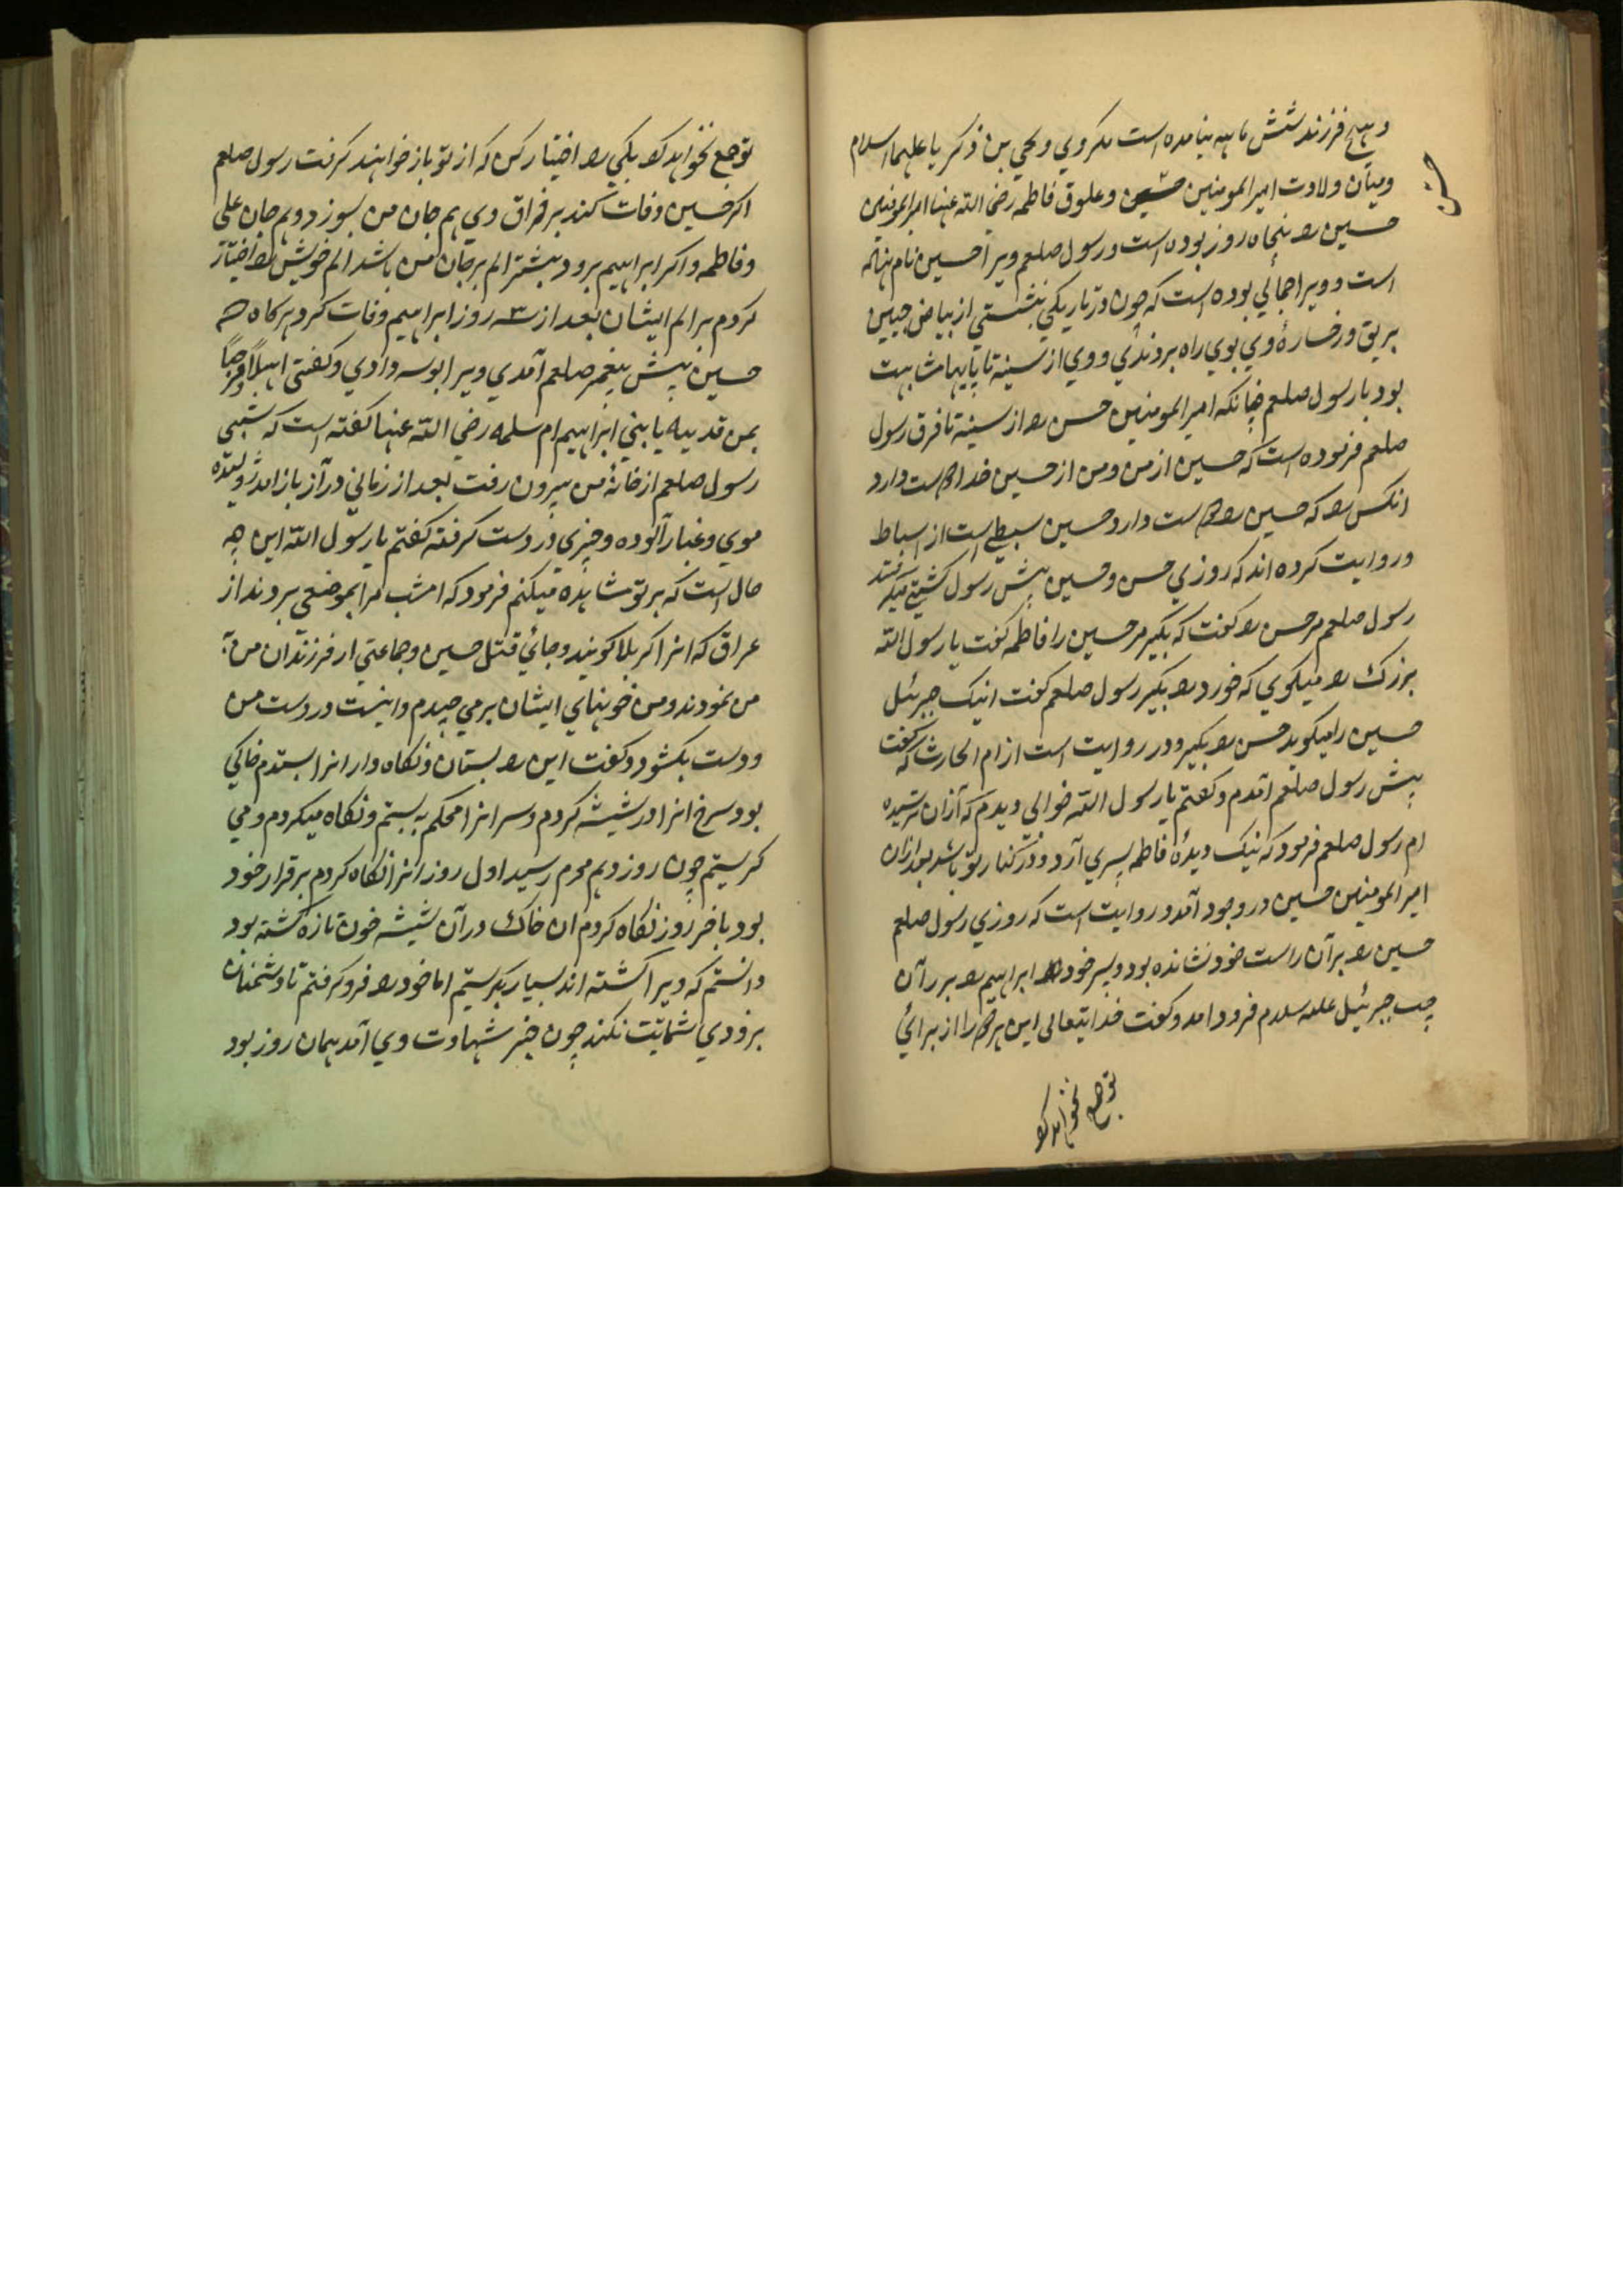 و هیچ فرزند شش ماهه نیامده است مکر وی و یحیی بن ذکریا علیهما السلام
و میان ولادت امیر المومنین حسن و علوق فاطمه رضی الله عنها امیر المومنین
حسین را پنجاه روز بوده است و رسول صلعم ویرا حسین نام نهاده
است و ویرا جمالی بوده است که چون در تاریکی بنشستی از بیاض جبین
بریق و رخسارهٔ وی بوی راه بردندی و وی از سینه تا پایها مشابهت
بود با رسول صلعم چنانکه امیر المومنین حسن را از سینه تا فرق رسول
صلعم فرموده است که حسین از من و من از حسین خدا دوست دارد
انکس را که حسین را دوست دارد حسین سبطی است از اسباط
و روایت کرده اند که روزی حسن و حسین پیش رسول کشتی میکرفتند
رسول صلعم مر حسن را کفت که بکیر مر حسین را فاطمه کفت یا رسول الله
بزرک را میکوی که خورد را بکیر رسول صلعم کفت اینک جبرئیل
حسین را میکوید حسن را بکیر و در روایت است از ام الحارث که کفت
پیش رسول صلعم آمدم و کفتم یا رسول الله خوابی دیدم که ازان ترسیده
ام رسول صلعم فرمود که نیک دیدهٔ فاطمه پسری آرد و در کنار تو باشد بعد ازان
امیر المومنین حسین در وجود آمد و روایت است که روزی رسول صلعم
حسین را بر ران راست خود نشانده بود و پسر خود ابراهیم را بر ران
چپ جبرئیل علیه سلام فرود امد و کفت خدایتعالی این هر دو را از برای
تو جمع نخواهد کرد
توجمع نخواهد کرد یکی را اختیار کن که از تو باز خواهند کرفت رسول صلعم
اکر حسین وفات کند بر فراق وی هم جان من بسوزد و هم جان علی
و فاطمه و اکر ابراهیم برود بیشتر الم بر جان من باشد الم خویش را اختیار
کردم بر الم ایشان بعد از سه روز ابراهیم وفات کرد هر کاه که
حسین پیش پیغمبر صلعم آمدی ویرا بوسه دادی و کفتی اهلاً و مرحباً
بمن فدیته یا بنی ابراهیم ام سلمه رضی الله عنها کفته است که شبی
رسول صلعم از خانهٔ من بیرون رفت بعد از زمانی دراز باز امد ژولیده
موی و غبار آلوده و چیزی در دست کرفته کفتم یا رسول الله این چه
حال است که بر تو مشاهده میکنم فرمود که امشب مرا بموضعی بردند از
عراق که انرا کربلا کویند و جائ قتل حسین و جماعتی از فرزندان من
من نمودند و من خونهای ایشان بر می چیدم و اینست در دست من
و دست بکشود و کفت این را بستان و نکاه دار انرا بستدم خاکی
بود سرخ انرا در شیشه کردم و سر انرا محکم به بستم و نکاه میکردم و می
کریستم چون روز دهم محرم رسید اول روز انرا نکاه کردم بر قرار خود
بود باخر روز نکاه کردم ان خاک در آن شیشه خون تازه کشته بود
دانستم که ویرا کشته اند بسیار بکریستم اما خود را فرو کرفتم تا دشمنان
بزودی شماتت نکنند چون خبر شهادت وی آمد همان روز بود